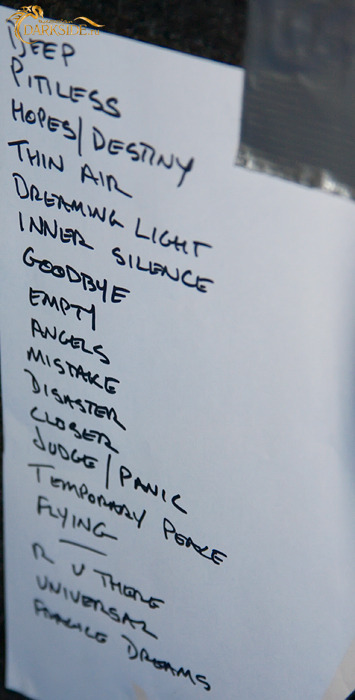 DARKSIDE.RU
DEEP
PITILESS
HOPES/DESTINY
THIN AIR
DREAMING LIGHT
INNER SILENCE
GOODBYE
EMPTY
ANGELS
MISTAKE
DISASTER
CLOSER
JUDGE/PANIC
TEMPORARY PEACE
FLYING
R U THERE
UNIVERSAL
FRAGILE DREAMS